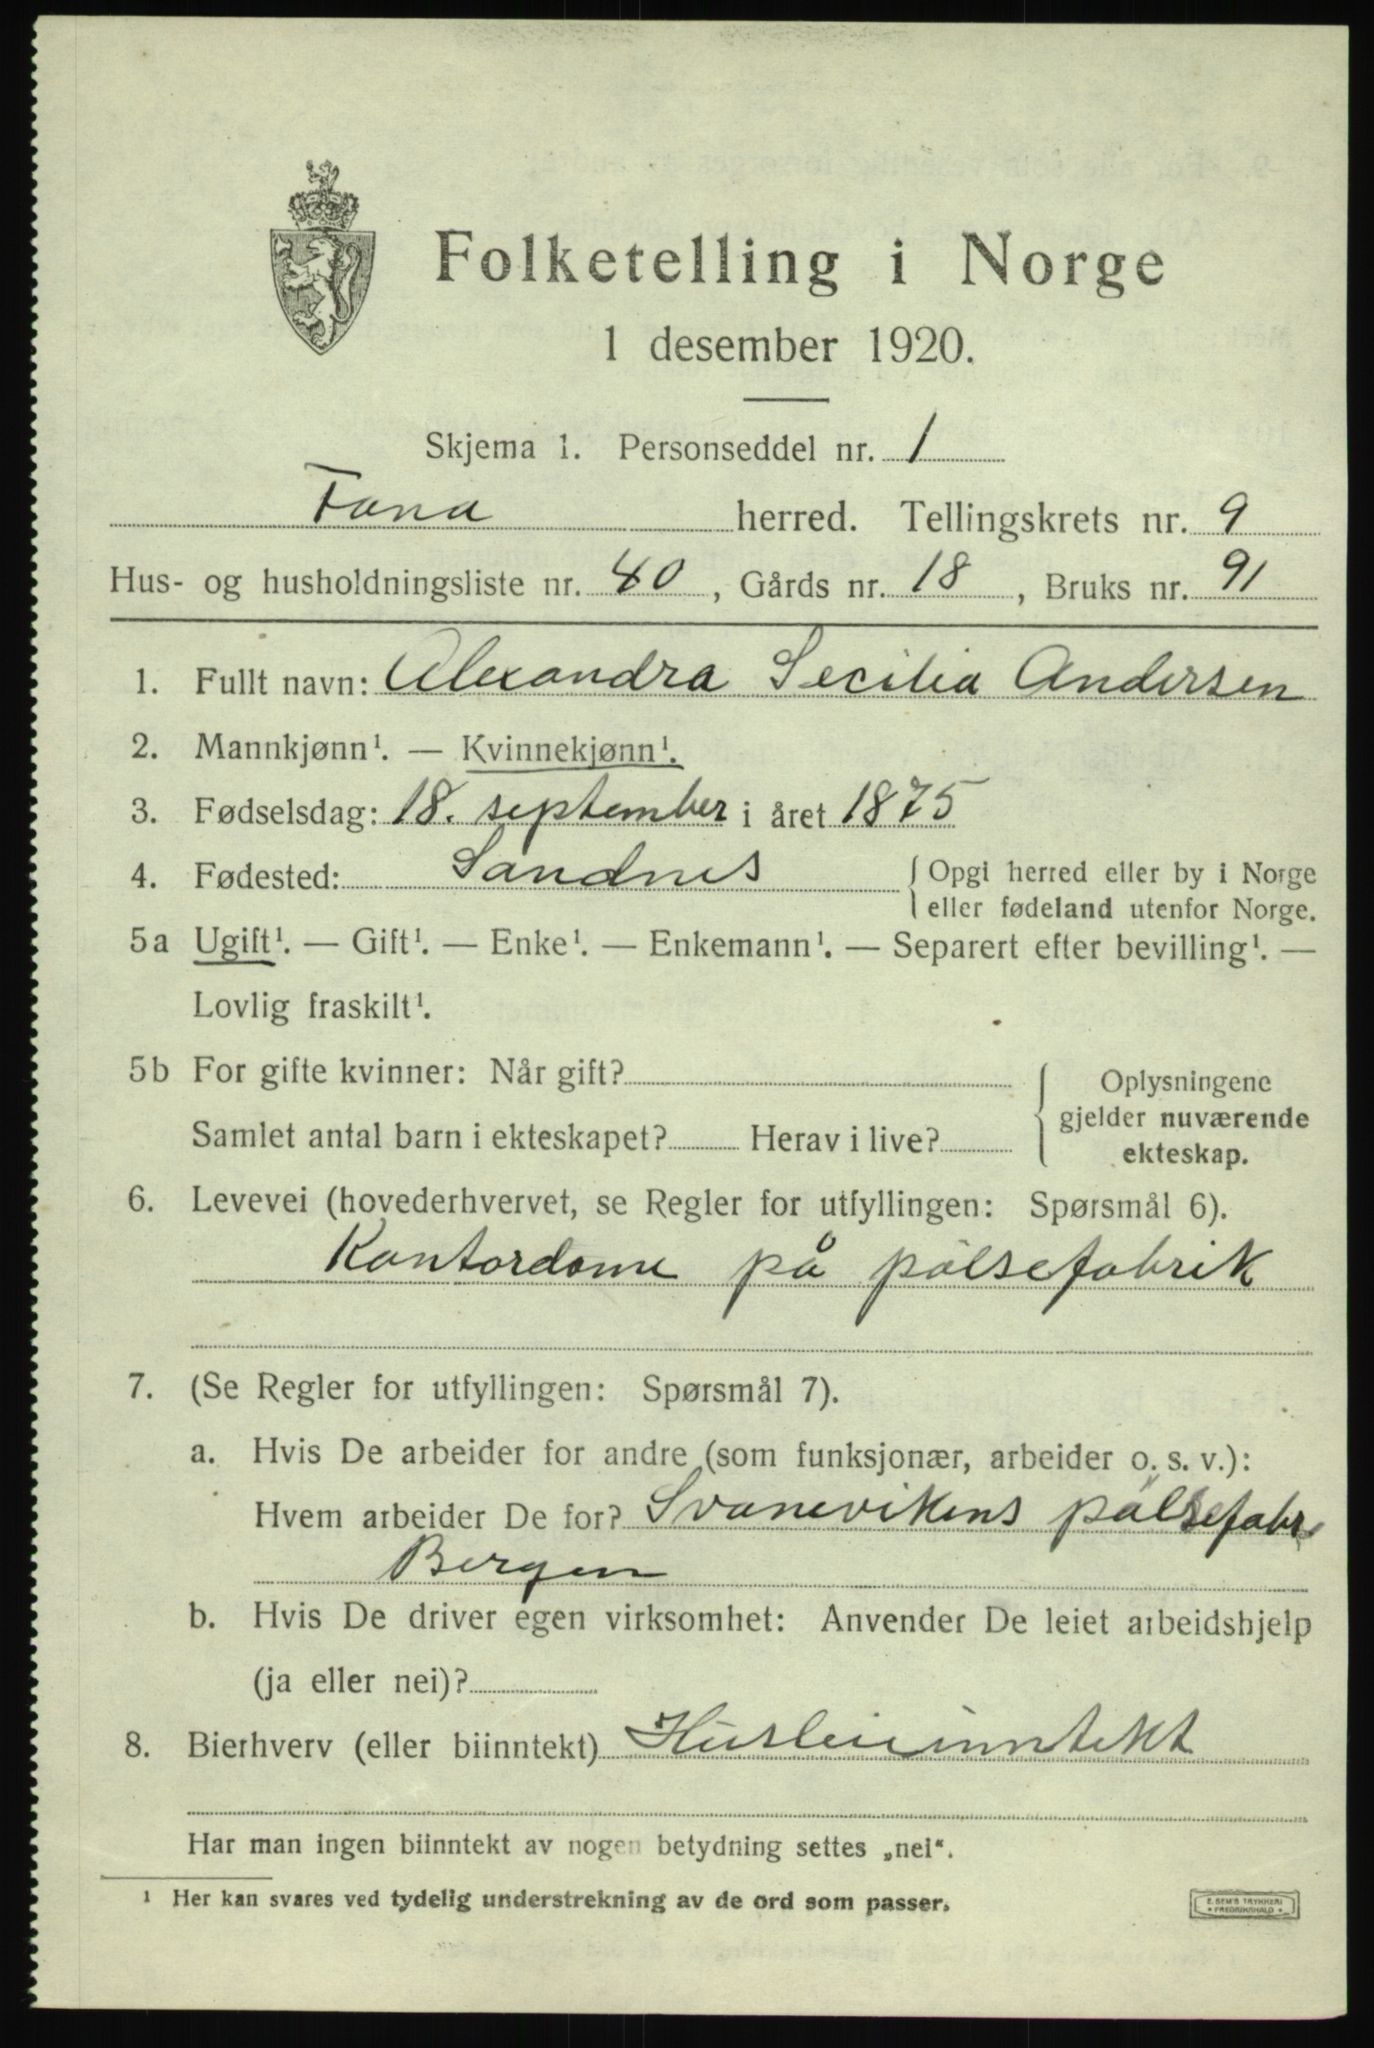 Folketelling i Norge
1 desember 1920.
Skjema 1. Personseddel nr. 1
Fana herred. Tellingskrets nr. 9
Hus- og husholdningsliste nr. 40, Gårds nr. 18, Bruks nr. 91
1. Fullt navn: Alexandra Secilia Andersen
2. Mannkjønn¹. — Kvinnekjønn¹.
3. Fødselsdag: 18. september i året 1875
4. Fødested: Sandnes { Opgi herred eller by i Norge
eller fødeland utenfor Norge.
5a Ugift¹. — Gift¹. — Enke¹. — Enkemann¹. — Separert efter bevilling¹. —
Lovlig fraskilt¹.
5b For gifte kvinner: Når gift? { Oplysningene
gjelder nuværende
Samlet antal barn i ekteskapet? Herav i live? ekteskap.
6. Levevei (hovederhvervet, se Regler for utfyllingen: Spørsmål 6).
Kontordame på pølsefabrik
7. (Se Regler for utfyllingen: Spørsmål 7).
a. Hvis De arbeider for andre (som funksjonær, arbeider o. s. v.):
Hvem arbeider De for? Svanevikens pølsefabr
Bergen
b. Hvis De driver egen virksomhet: Anvender De leiet arbeidshjelp
(ja eller nei)?
8. Bierhverv (eller biinntekt) Husleieinntekt
Har man ingen biinntekt av nogen betydning settes „nei“.
¹ Her kan svares ved tydelig understrekning av de ord som passer.
E. SEM'S TRYKKERI
FREDRIKSHALD